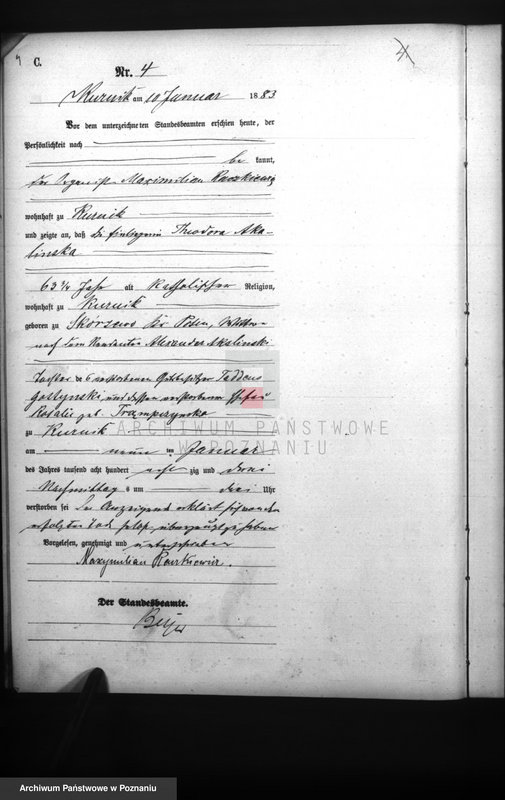 C.
4
Nr. 4
Kurnik am 10 Januar 1883
Vor dem unterzeichneten Standesbeamten erschien heute, der
Persönlichkeit nach
be kannt,
der Organist Maximilian Raczkiewicz
wohnhaft zu Kurnik
und zeigte an, daß die Theodora Aka-
linska
63 3/4 Jahr alt katholischer Religion,
wohnhaft zu Kurnik
geboren zu Kr. Posen, Wittwe
nach dem Alexander Akalinski
Tochter des verstorbenen Gutsbesitzer
und dessen verstorbenen Ehefrau
Rosalie geb. Trampczynska
zu Kurnik
am neun ten Januar
des Jahres tausend acht hundert acht zig und drei
Nachmittag s um drei Uhr
verstorben sei. Der Anzeigende erklärt sich von dem
erfolgten Tod selbst überzeugt zu haben
Vorgelesen, genehmigt und unterschrieben
Maxymilian Raczkiewicz.
Der Standesbeamte.
ARCHIWUM PAŃSTWOWE
W POZNANIU
Archiwum Państwowe w Poznaniu